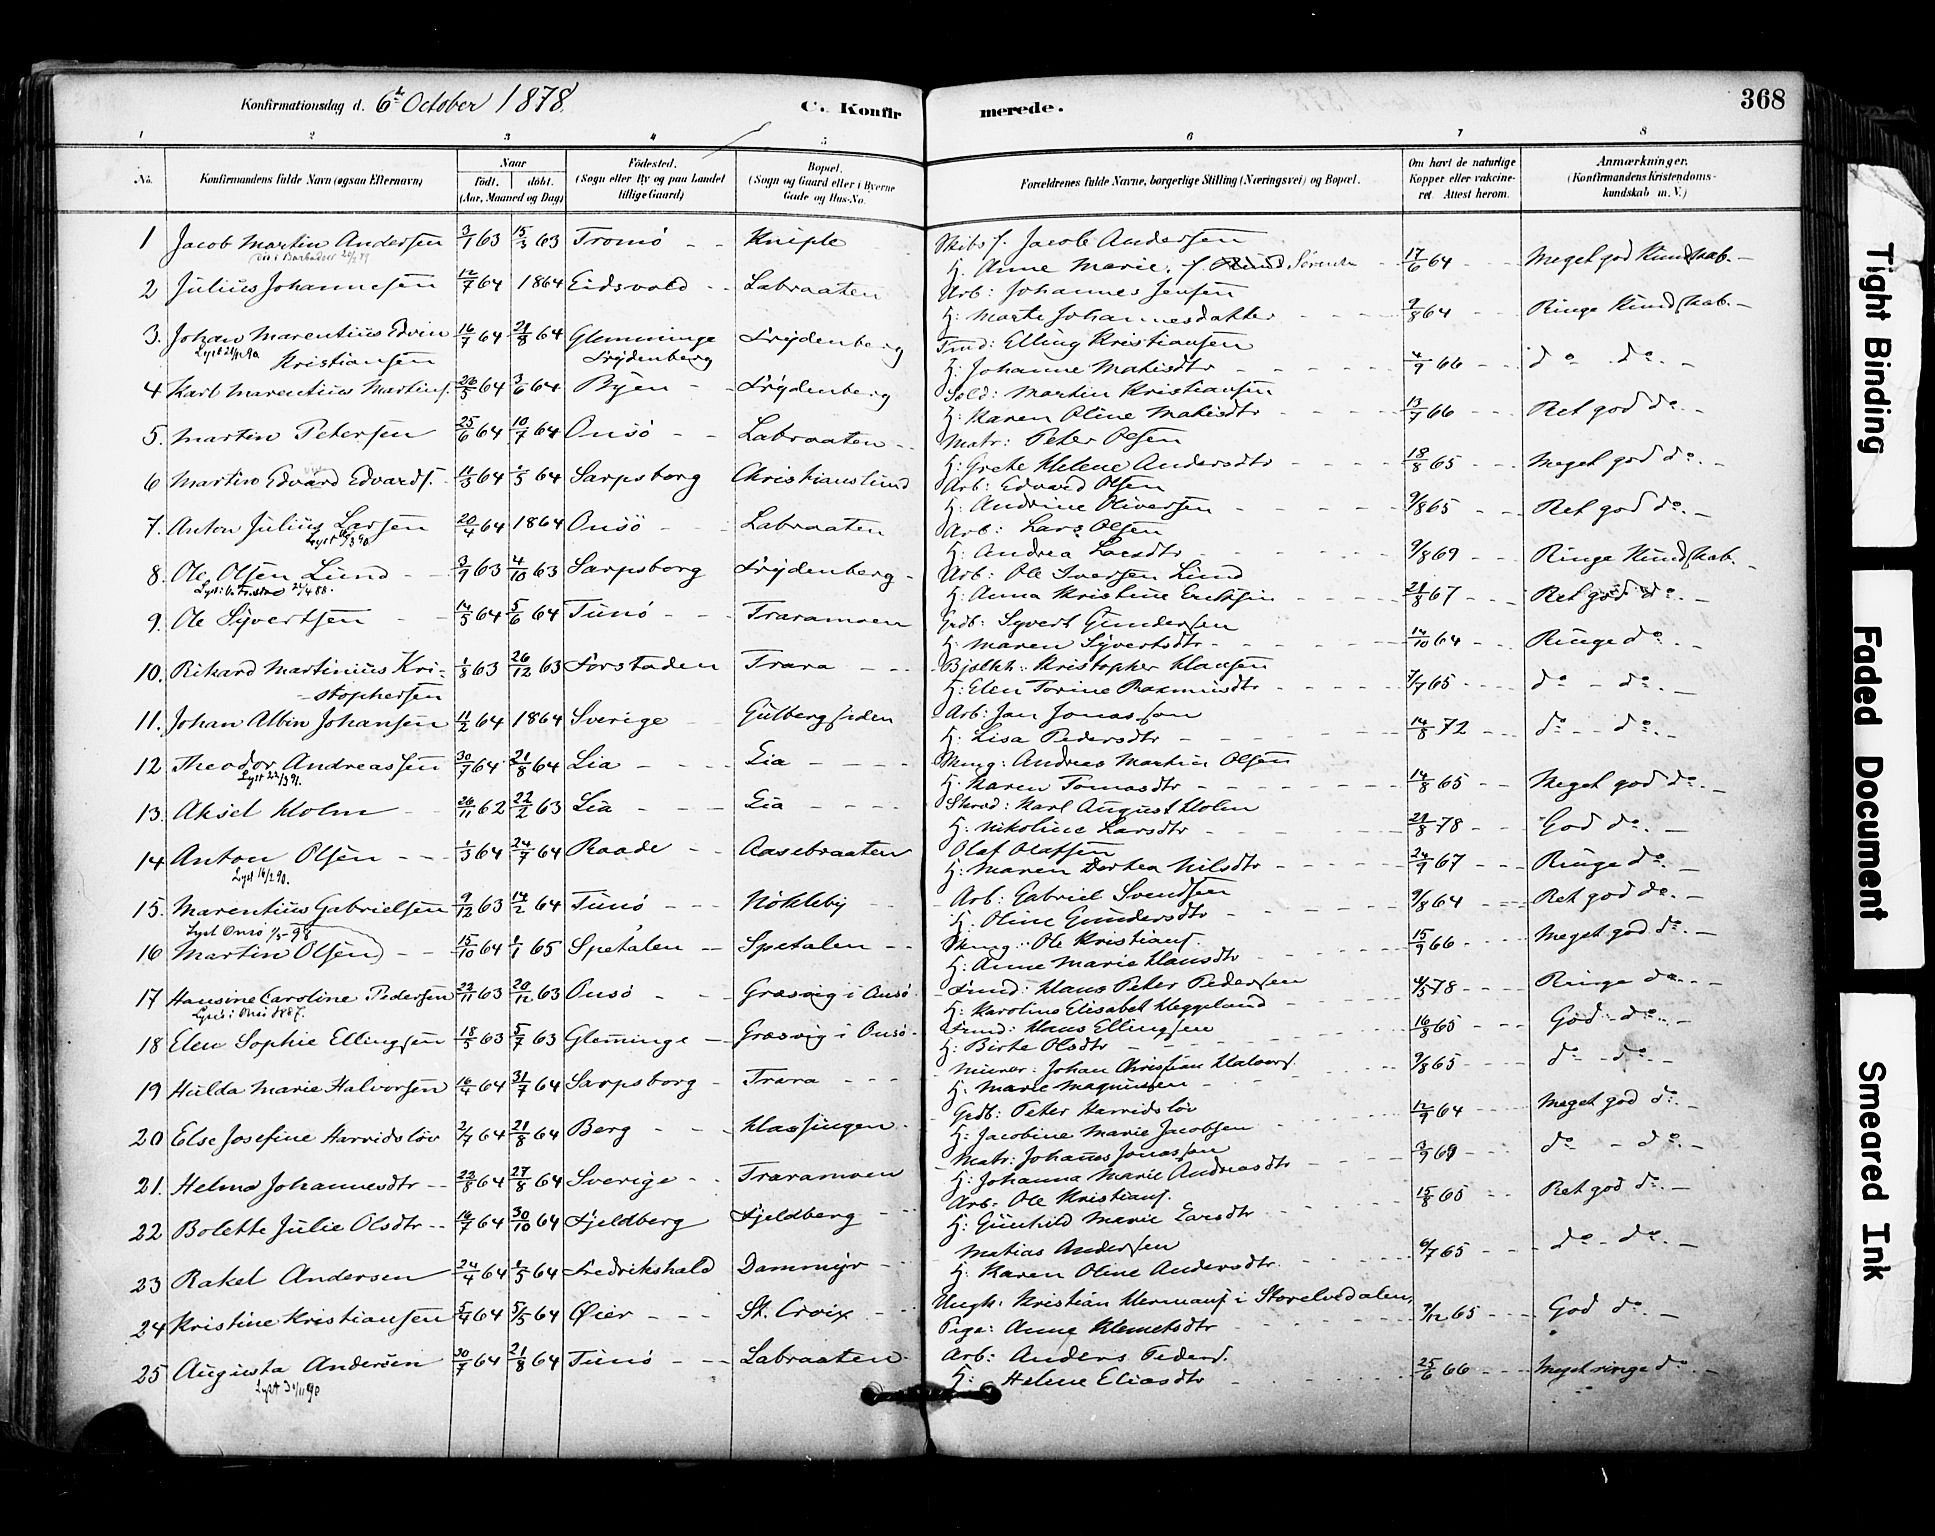 Konfirmationsdag d. 6te October 1878.
C. Konfirmerede.
368
1 2 3 4 5 6 7 8
No.
Konfirmandens fulde Navn (ogsaa Efternavn)
Naar
født. døbt.
(Aar, Maaned og Dag)
Fødested.
(Sogn eller By og paa Landet tillige Gaard)
Bopæl.
(Sogn og Gaard eller i Byerne Gade og Hus-No.
Forældrenes fulde Navne, borgerlige Stilling (Næringsvei) og Bopæl.
Om havt de naturlige Kopper eller vakcineret. Attest herom.
Anmærkninger.
(Konfirmandens Kristendomskundskab m. V.)
1 Jacob Martin Andersen 3/1 63 15/3 63 Tromø - - Kniple Skibsf. Jacob Andersen
H. Anne Marie, f. 17/6 64 Meget god Kundskab. -
2 Julius Johannesen 12/7 64 1864 Eidsvold - - Labraaten Arb: Johannes Jensen
H: Marte Johannesdatter 2/8 64 Ringe Kundskab. -
3. Johan Marentius Edvin Kristiansen 16/7 64 21/8 64 Glemminge Frydenberg Frydenberg Tmd: Elling Kristiansen
H: Johanne Mathisdtr 4/9 66 do do. -
4 Karl Marentius Martins. 22/3 64 3/6 64 Byen - - Frydenberg Sold: Martin Kristiansen
H: Karen Oline Mathisdtr 13/7 66 Ret god do. -
5. Martin Petersen 25/6 64 10/7 64 Onsö - - Labraaten - - Matr: Peter Olsen
H: Grethe Helene Andersdtr 18/8 65 Meget god do. -
6 Martin Edvard Edvards. 11/3 64 1/5 64 Sarpsborg Christianslund Arb: Edvard Olsen
H: Andrine Oliversen 9/8 65 Ret god do. -
7. Anton Julius Larsen 20/4 64 1864 Onsö - Labraaten Arb: Lars Olsen
H: Andrea Larsdtr 9/8 69 Ringe Kundskab. -
8. Ole Olsen Lund 3/9 63 4/10 63 Sarpsborg Frydenberg - Arb: Ole Iversen Lund
H: Anna Kristine Eriksen 21/8 67 Ret god do. -
9. Ole Syvertsen 14/5 64 5/6 64 Tunö - - Traramoen Grdb: Syvert Gundersen
H: Maren Syvertsdtr 14/10 64 Ringe do. -
10. Rikard Martinius Kristophersen 1/8 63 26/12 63 Forstaden Trara - - - Bjælkh: Kristopher Klausen
H: Elen Torine Rasmusdtr 7/7 65 do - do. -
11. Johan Albin Johansen 11/2 64 1864 Sverige - Gulbergsiden Arb: Jan Jonasson
H: Lisa Pedersdtr 14/8 72 do - - do. -
12 Theodor Andreassen 30/7 64 21/8 64 Lia - - - Lia - - - - Mmg: Andreas Martin Olsen
Lyst 22/3 91.
H: Karen Tomasdtr 14/8 65 Meget god do. -
13. Aksel Holm 26/11 62 22/2 63 Lia - - - Lia - - - - Skræd: Karl August Holm
H: Nikoline Larsdtr 21/8 78 God do. -
14 Anton Olsen - - - 1/3 64 24/7 64 Raade - - Aasebraaten Olaf Olafsen
Lyst 16/2 90.
H: Maren Dorthea Nilsdtr 24/9 67 Ringe do. -
15. Marentius Gabrielsen 9/12 63 14/2 64 Tunö - - - Nökleby Arb: Gabriel Svendsen
Lyst Onsö 1/5-98
H. Oline Gundersdtr 9/8 64 Ret god do. -
16 Martin Olsen - - 15/10 64 1/1 65 Spetalen - Spetalen - - Mmg: Ole Kristians.
H: Anne Marie Hansdtr 15/9 66 Meget god do. -
17 Hansine Caroline Pedersen 22/11 63 20/12 63 Onsö - - Græsvig i Onsö. Tmd: Hans Peter Pedersen
Lyst i Onsö 1887.
H: Karoline Elisabet Heggelund 4/5 78 Ringe do. - -
18 Elen Sophie Ellingsen 18/5 63 5/7 63 Gleminge - Græsvig i Onsö. Tmd: Hans Ellingsen
H: Birte Olsdtr 16/8 65 God do. -
19 Hulda Marie Halvorsen 16/4 64 31/7 64 Sarpsborg - Trara - - - Murer: Johan Christian Halvors.
H: Marie Magnussen 9/8 65 do - do. -
20 Else Josefine Harridsløv 2/7 64 21/8 64 Berg - - - Klassingen. Grdb: Peter Harridsløv
H: Jacobine Marie Jacobsen 12/9 64 Meget god do. -
21. Helma Johannesdtr - - 22/8 64 27/8 64 Sverige - - Traramoen Matr: Johannes Jonasson
H: Johanna Marie Andreasdtr 3/9 69 do - do. -
22 Bolette Julie Olsdtr - - 16/7 64 30/10 64 Fjeldberg Fjeldberg - - Arb. Ole Kristians.
H: Gunhild Marie Larsdtr 15/8 65 Ret god do. -
23 Rakel Andersen 24/4 64 1/5 64 Fredrikshald Dammyr - - Matias Andersen
H. Karen Oline Andersdtr. 6/7 65 do - do. -
24 Kristine Kristiansen 5/4 64 5/5 64 Øier - - - St. Croix - - Ungk: Kristian Hermans. i Storelvedalen,
Pige: Anne Klemetsdtr 7/12 65 God do. -
25 Augusta Andersen 30/7 64 21/8 64 Tunö - - - Labraaten. Arb: Anders Peders.
Lyst 30/11 90
H: Helene Eliasdtr 25/6 66 Meget ringe do. -
Tight Binding
Faded Document
Smeared Ink